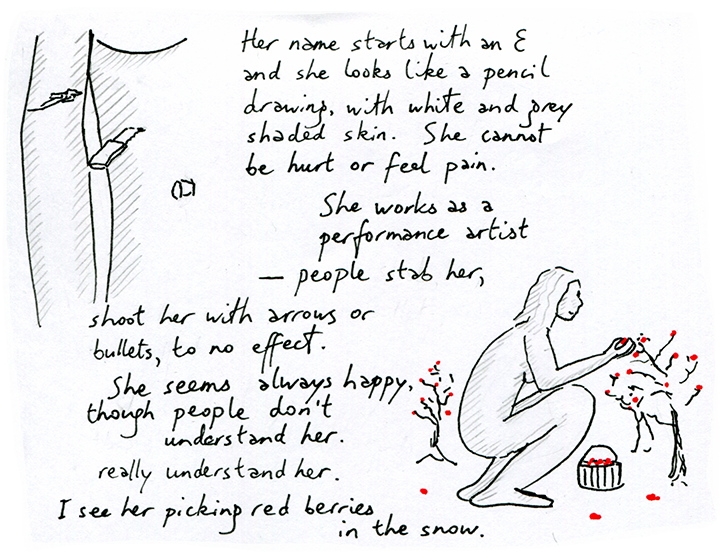 Her name starts with an E
and she looks like a pencil
drawing, with white and grey
shaded skin. She cannot
be hurt or feel pain.
She works as a
performance artist
— people stab her,
shoot her with arrows or
bullets, to no effect.
She seems always happy,
though people don't
understand her.
really understand her.
I see her picking red berries
in the snow.